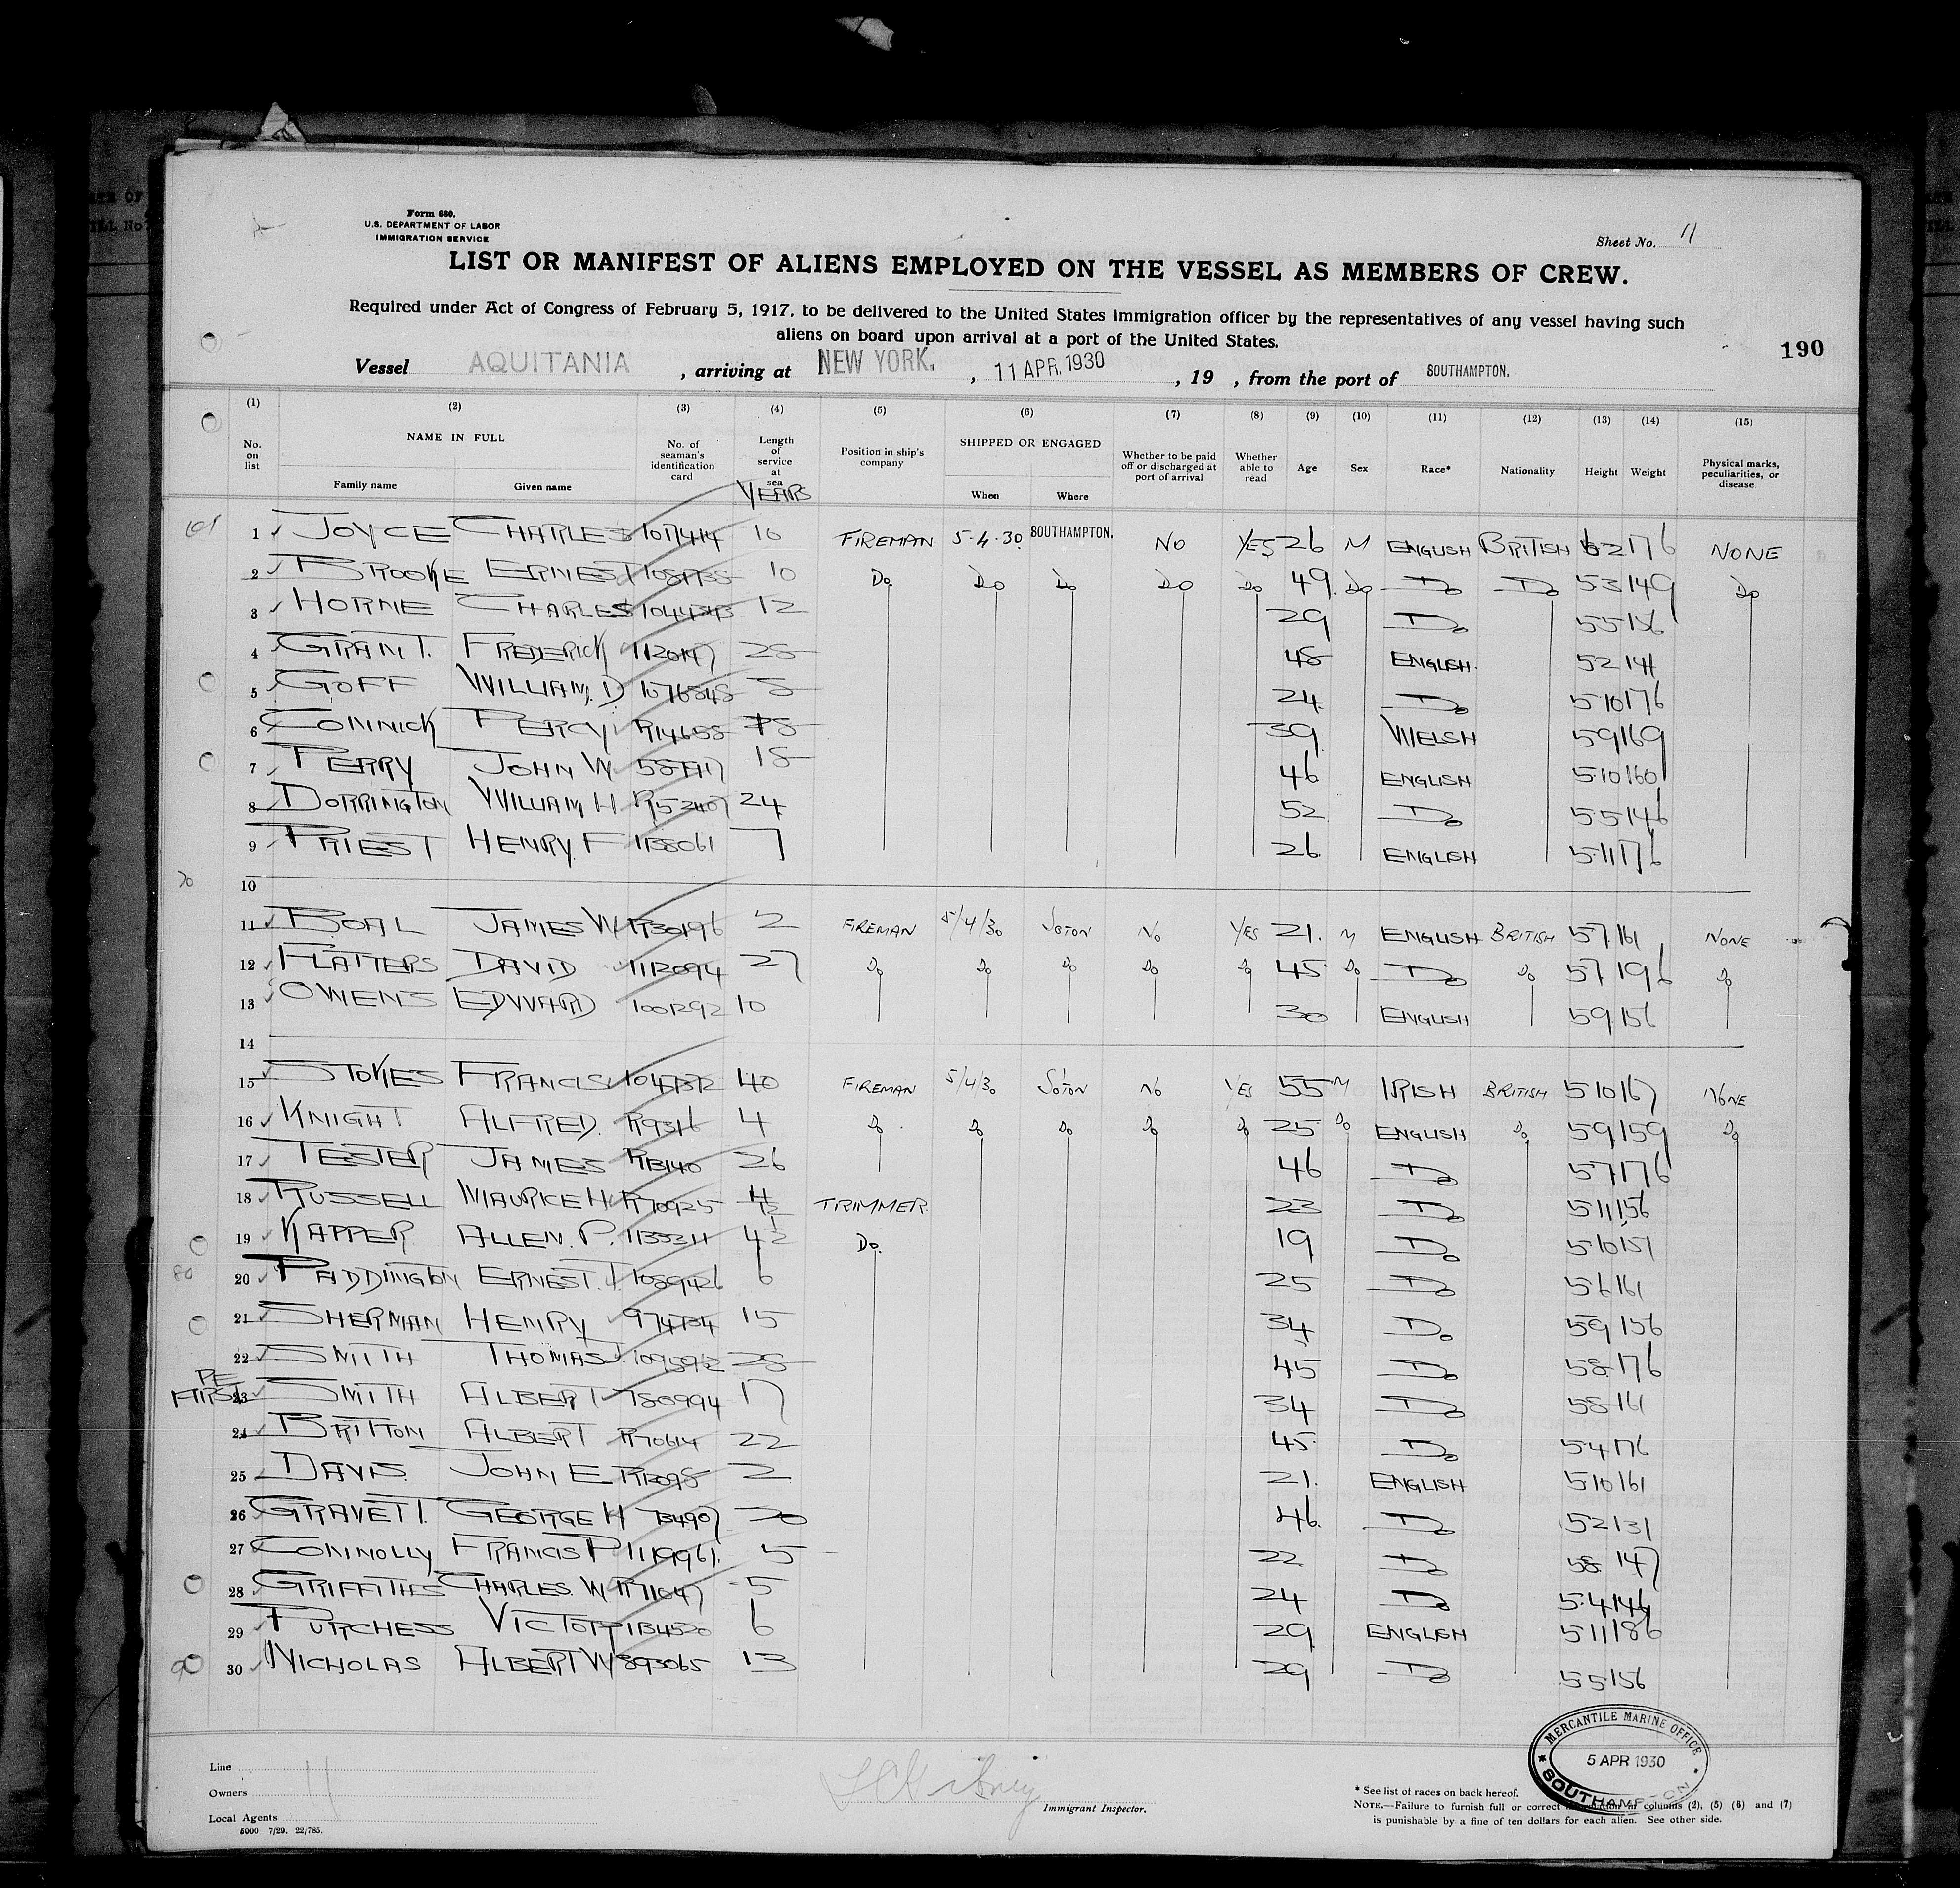 Form 680.
U.S. DEPARTMENT OF LABOR
IMMIGRATION SERVICE
Sheet No. 11
LIST OR MANIFEST OF ALIENS EMPLOYED ON THE VESSEL AS MEMBERS OF CREW.
Required under Act of Congress of February 5, 1917, to be delivered to the United States immigration officer by the representatives of any vessel having such
aliens on board upon arrival at a port of the United States.
190
Vessel AQUITANIA, arriving at NEW YORK., 11 APR. 1930, 19 , from the port of SOUTHAMPTON.
(1) (2) (3) (4) (5) (6) (7) (8) (9) (10) (11) (12) (13) (14) (15)
No. on list NAME IN FULL Family name Given name No. of seaman's identification card Length of service at sea YEARS Position in ship's company SHIPPED OR ENGAGED When Where Whether to be paid off or discharged at port of arrival Whether able to read Age Sex Race* Nationality Height Weight Physical marks, peculiarities, or disease
1 JOYCE CHARLES 1017414 10 FIREMAN 5-4-30 SOUTHAMPTON. NO YES 26 M ENGLISH BRITISH 62 176 NONE
2 BROOKE ERNEST 10 Do Do Do Do Do 49 Do Do Do 53 149 Do
3 HORNE CHARLES 12 29 Do 55 156
4 GRANT. FREDERICK 28 48 ENGLISH. 52 141
5 GOFF WILLIAM. D 5 24 Do 5·10 176
6 CONNICK PERCY R14658 39 WELSH 59 169
7 PERRY JOHN W 18 46 ENGLISH 5·10 160
8 DORRINGTON WILLIAM H 24 52 Do 5·5 146
9 PRIEST HENRY. F 7 26 ENGLISH 5·11 176
70
10
11 BOAL JAMES W R30196 2 FIREMAN 5/4/30 SOTON NO YES 21. M ENGLISH BRITISH 57 161 NONE
12 FLATTERS DAVID 1112094 27 Do Do Do Do Do 45 Do Do Do 57 196 Do
13 OWENS EDWARD 1001292 10 30 ENGLISH 59 156
14
15 STOKES FRANCIS 40 FIREMAN 5/4/30 SOTON NO YES 55 M IRISH BRITISH 510 167 NONE
16 KNIGHT ALFRED. R9316 4 Do Do Do Do Do 25 Do ENGLISH Do 59 159 Do
17 TESTER JAMES R13140 26 46 Do 57 176
18 RUSSELL MAURICE H R70925 TRIMMER. 23 Do 511 156
19 KAPPER ALLEN. P. 4½ Do. 19 Do 5·10 151
80
20 PADDINGTON ERNEST. 6 25 Do 56 161
21 SHERMAN HENRY 974734 15 34 Do 59 156
22 SMITH THOMAS 28 45 Do 58 176
23 SMITH ALBERT 780994 17 34 Do 58 161
24 BRITTON ALBERT R70614 22 45 Do 54 176
25 DAVIS. JOHN E 2 21. ENGLISH 5·10 161
26 GRAVETT. GEORGE H 20 46. Do 52 131
27 CONNOLLY FRANCIS P 1119961. 5 22 Do 58 147
28 GRIFFITHS CHARLES. W 5 24 Do 5·4 144
29 PURCHESS VICTOR 1134520 6 29 ENGLISH 511 186
90
30 NICHOLAS ALBERT W 893065 13 29 Do 55 156
MERCANTILE MARINE OFFICE
5 APR 1930
SOUTHAMPTON
Line
Owners
Local Agents
5000 7/29. 22/785.
11
Immigrant Inspector.
* See list of races on back hereof.
NOTE.—Failure to furnish full or correct information in columns (2), (5) (6) and (7)
is punishable by a fine of ten dollars for each alien. See other side.